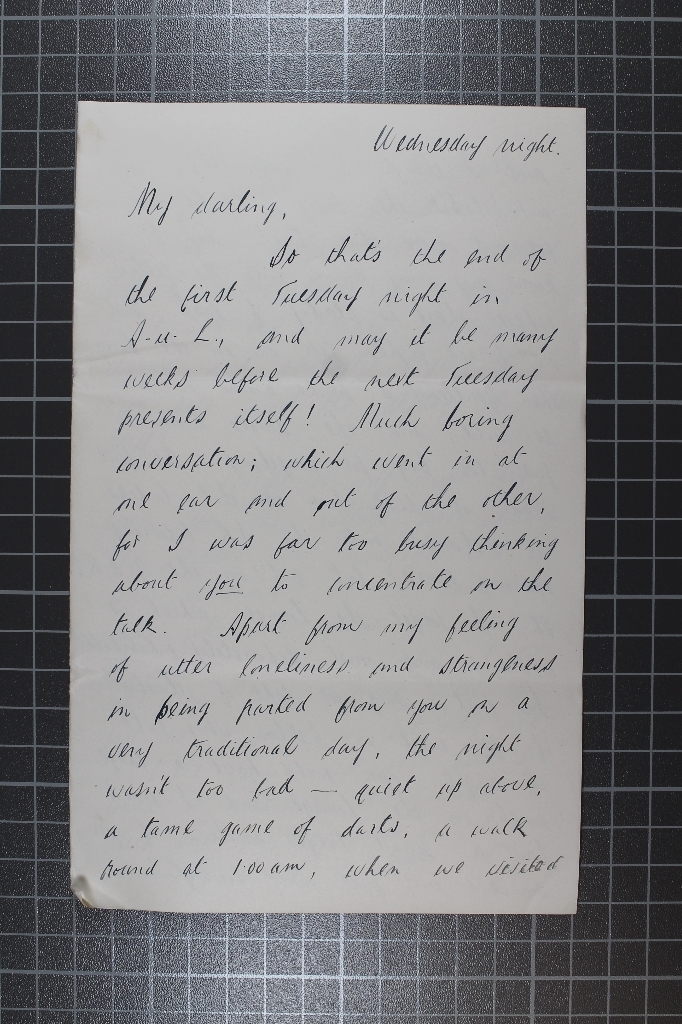 Wednesday night.
My darling,
So that's the end of
the first Tuesday night in
A-u-L., and may it be many
weeks before the next Tuesday
presents itself! Much boring
conversation; which went in at
one ear and out of the other,
for I was far too busy thinking
about you to concentrate on the
talk. Apart from my feeling
of utter loneliness and strangeness
in being parted from you on a
very traditional day, the night
wasn't too bad — quiet up above,
a tame game of darts, a walk
round at 1.00 am, when we visited